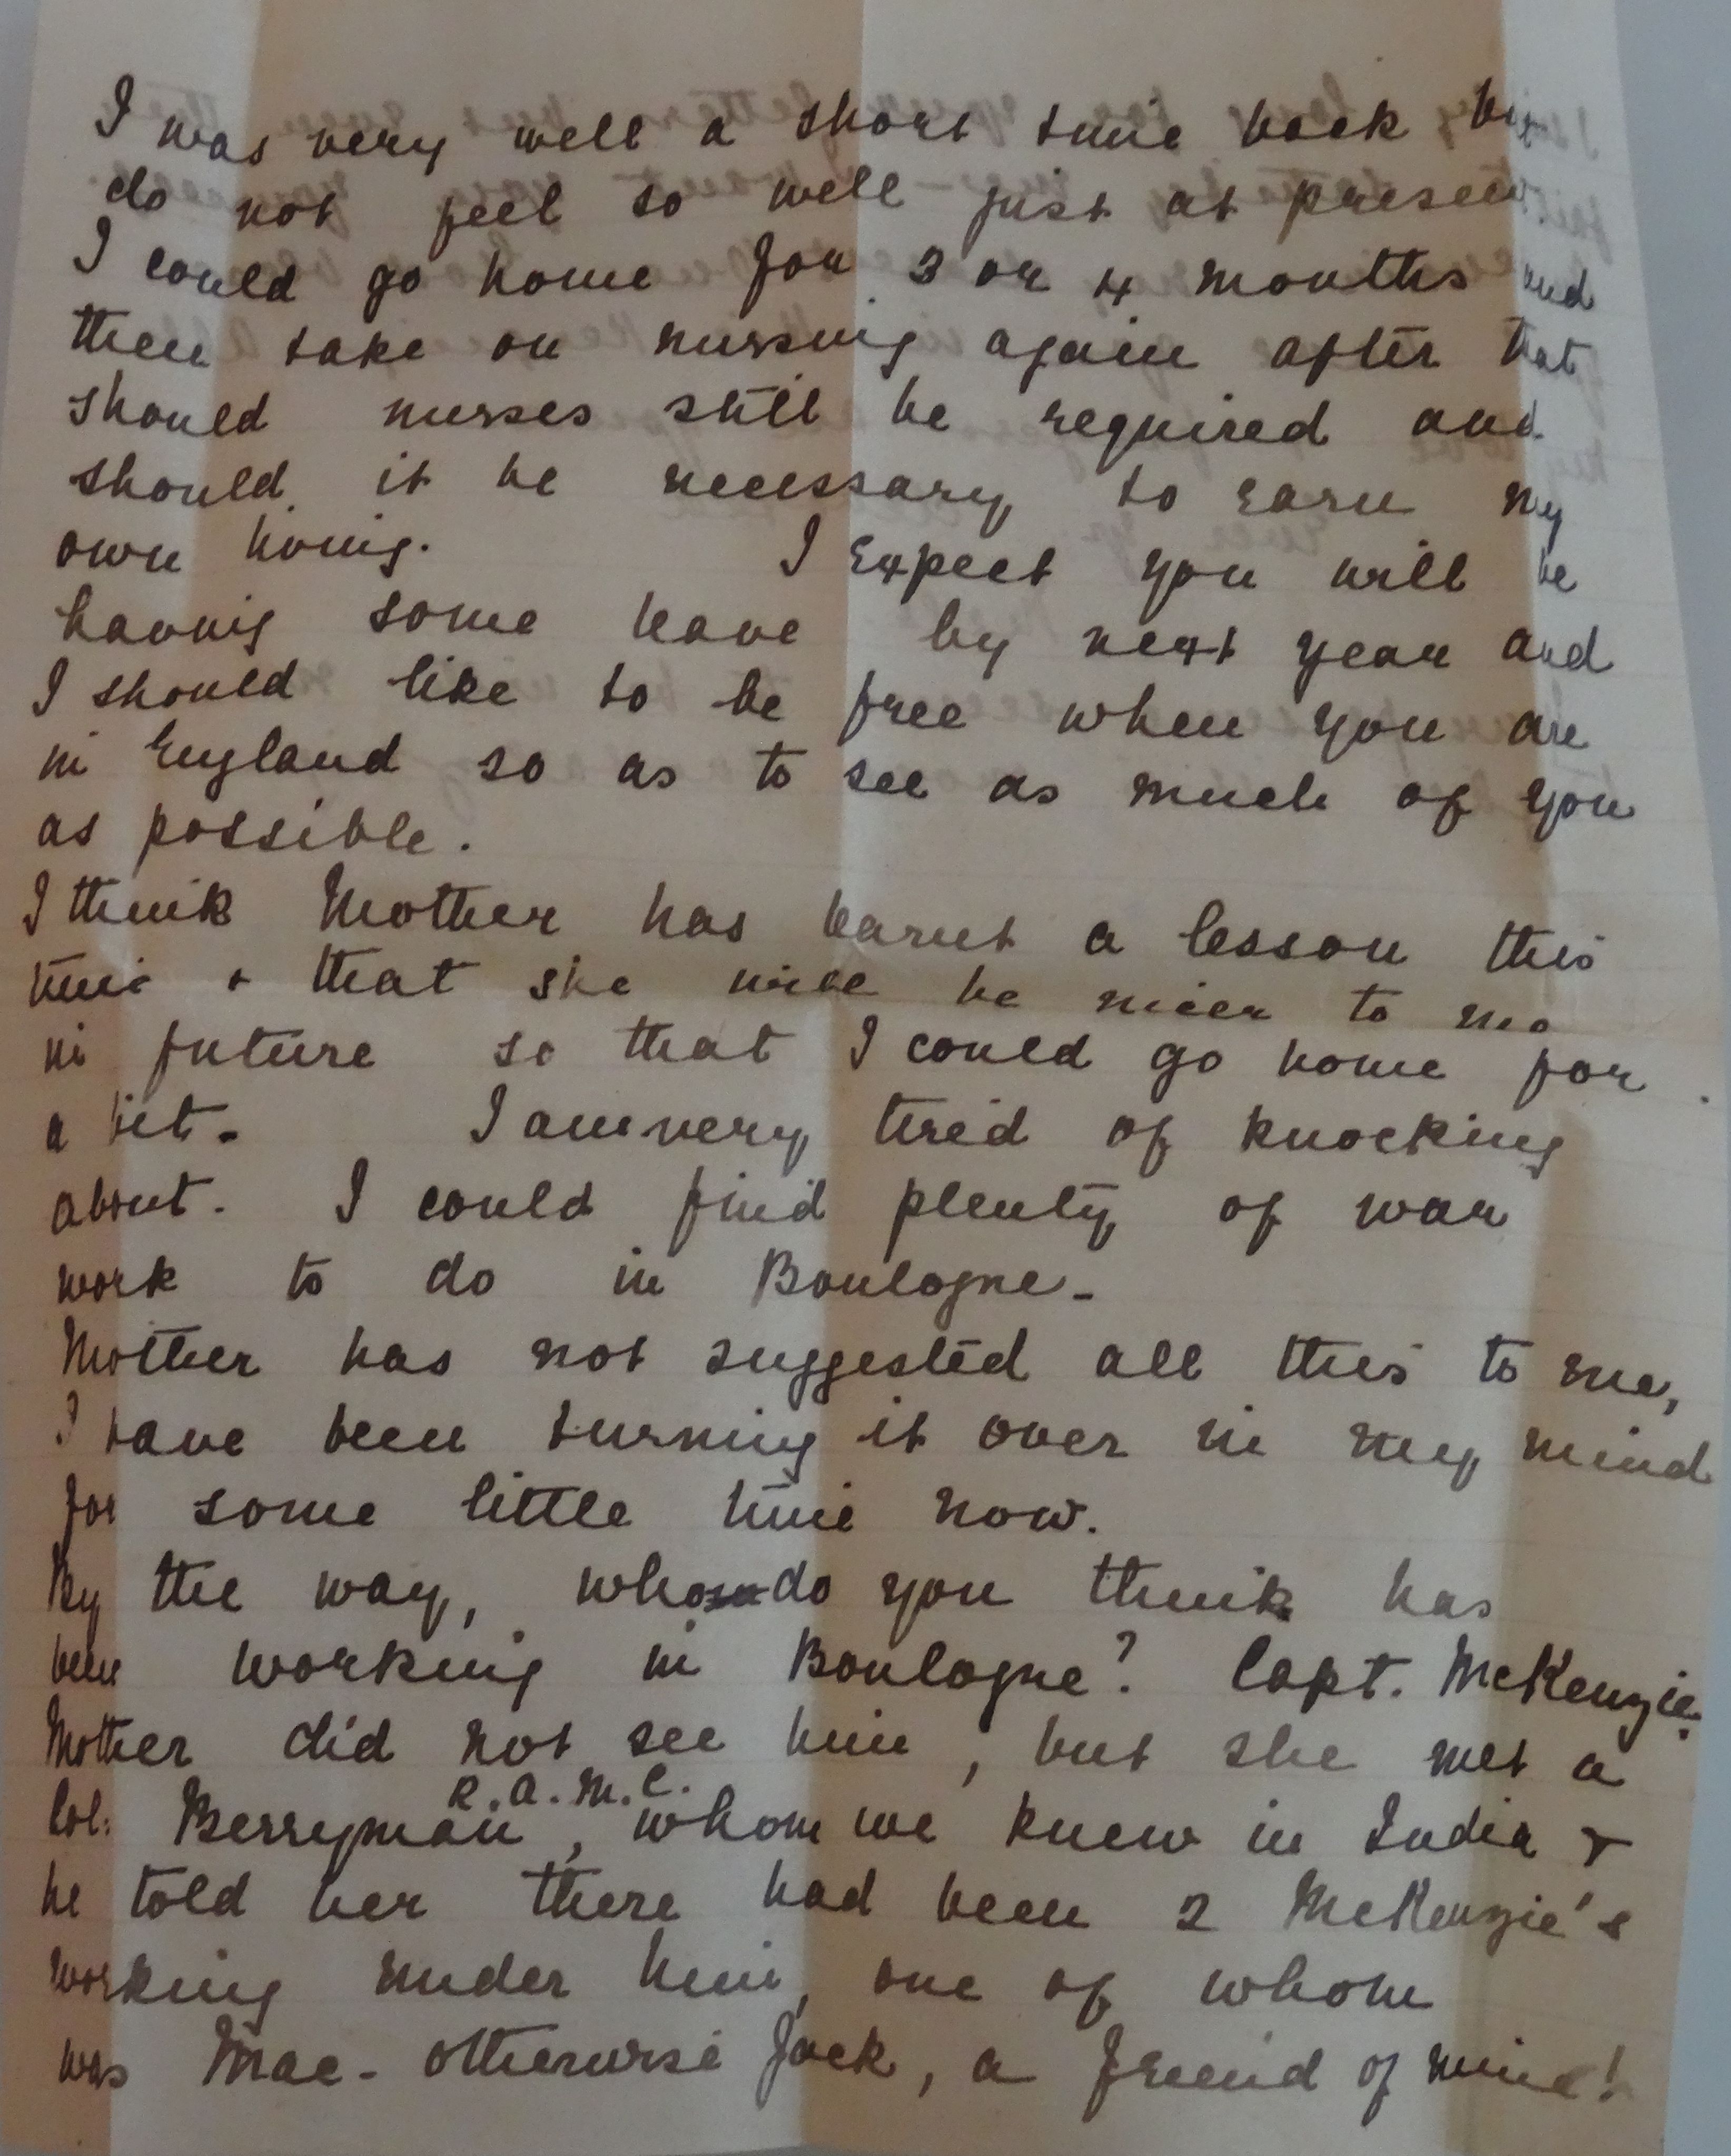 I was very well a short time back but
do not feel so well just at present
I could go home for 3 or 4 months and
then take on nursing again after that
should nurses still be required and
should it be necessary to earn my
own living. I expect you will be
having some leave by next year and
I should like to be free when you are
in England so as to see as much of you
as possible.
I think Mother has learnt a lesson this
time + that she will be nicer to me
in future so that I could go home for
a bit. I am very tired of knocking
about. I could find plenty of war
work to do in Boulogne.
Mother has not suggested all this to me,
I have been turning it over in my mind
for some little time now.
By the way, who do you think has
been working in Boulogne? Capt. McKenzie.
Mother did not see him, but she met a
R.A.M.C.
Col: Berryman, whom we knew in India +
he told her there had been 2 McKenzie's
working under him, one of whom
was Mac - otherwise Jack, a friend of mine!